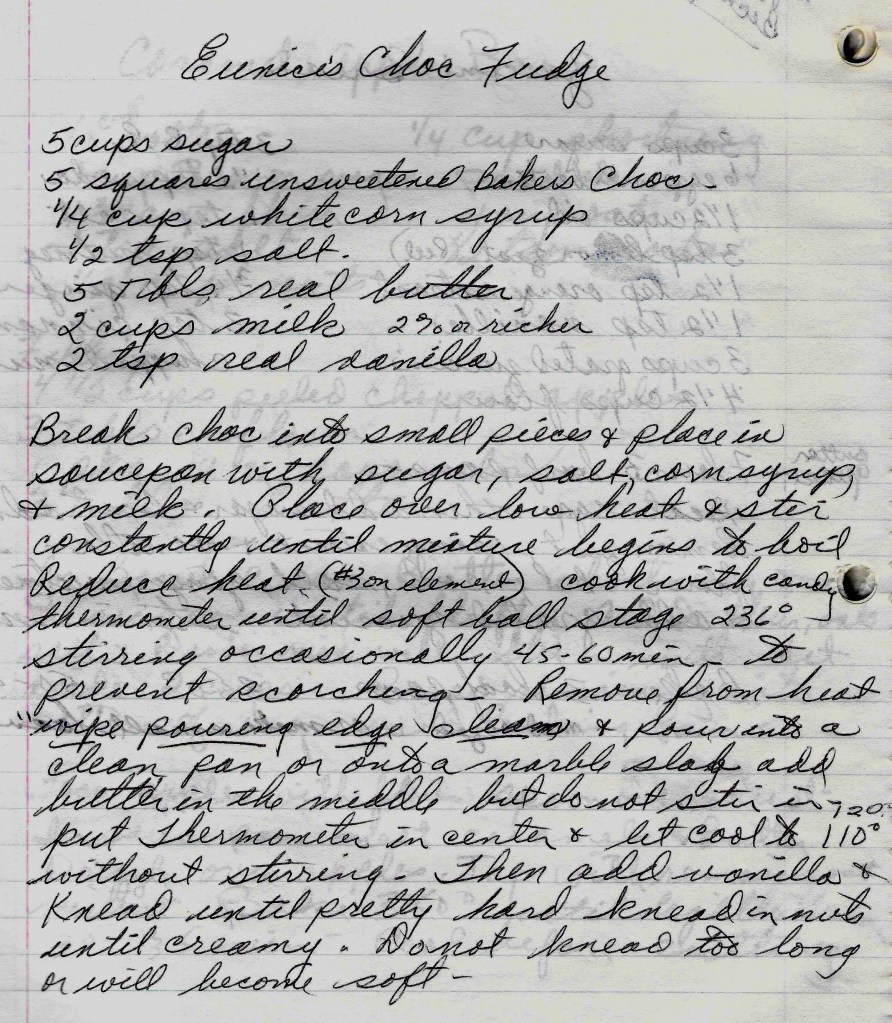 Eunice's Choc Fudge
5 cups sugar
5 squares unsweetened Bakers Choc.
1/4 cup white corn syrup
1/2 tsp salt.
5 Tbls real butter
2 cups milk 2% or richer
2 tsp real vanilla
Break choc into small pieces & place in
saucepan with sugar, salt, corn syrup,
& milk. Place over low heat & stir
constantly until mixture begins to boil
Reduce heat. (#3 on element) cook with candy
thermometer until soft ball stage 236°
stirring occasionally 45-60 min - to
prevent scorching - Remove from heat
"wipe pouring edge clean & pour into a
clean pan or onto a marble slab add
butter in the middle but do not stir in
put thermometer in center & let cool to 110°
without stirring. Then add vanilla &
Knead until pretty hard knead in nuts
until creamy. Do not knead too long
or will become soft -